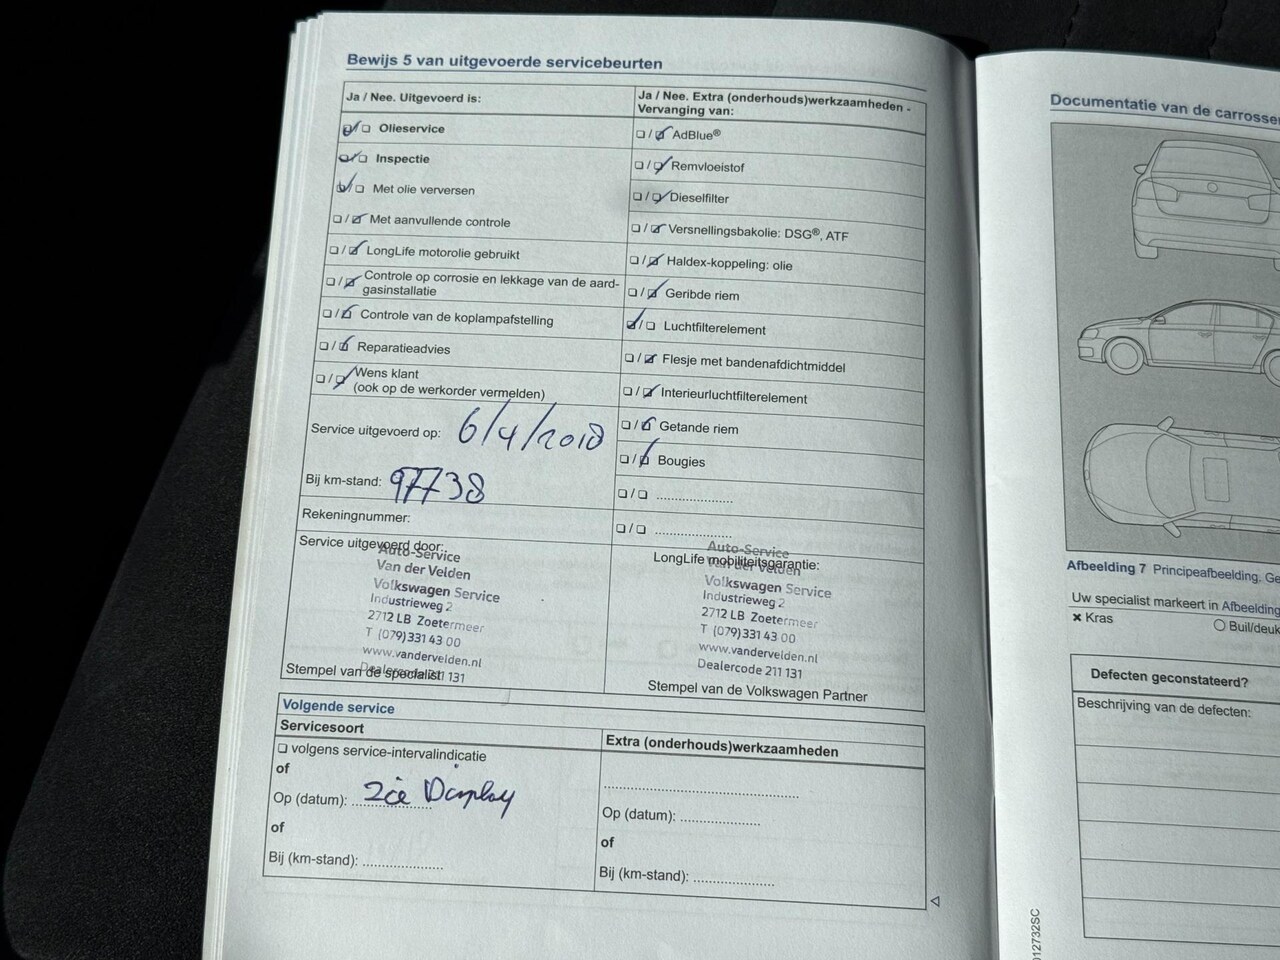 Bewijs 5 van uitgevoerde servicebeurten
Ja / Nee. Uitgevoerd is:
Olieservice
Inspectie
Met olie verversen
Met aanvullende controle
LongLife motorolie gebruikt
Controle op corrosie en lekkage van de aard-
gasinstallatie
Controle van de koplampafstelling
Reparatieadvies
Wens klant
(ook op de werkorder vermelden)
Service uitgevoerd op: 6/4/2018
Bij km-stand: 97738
Rekeningnummer:
Service uitgevoerd door:
Auto-Service
Van der Velden
Volkswagen Service
Industrieweg 2
2712 LB Zoetermeer
T (079) 331 43 00
www.vandervelden.nl
Dealercode 211 131
Stempel van de specialist
Ja / Nee. Extra (onderhouds)werkzaamheden -
Vervanging van:
AdBlue®
Remvloeistof
Dieselfilter
Versnellingsbakolie: DSG®, ATF
Haldex-koppeling: olie
Geribde riem
Luchtfilterelement
Flesje met bandenafdichtmiddel
Interieurluchtfilterelement
Getande riem
Bougies
LongLife mobiliteitsgarantie:
Auto-Service
Van der Velden
Volkswagen Service
Industrieweg 2
2712 LB Zoetermeer
T (079) 331 43 00
www.vandervelden.nl
Dealercode 211 131
Stempel van de Volkswagen Partner
Volgende service
Servicesoort
volgens service-intervalindicatie
of
Op (datum): zie Display
of
Bij (km-stand):
Extra (onderhouds)werkzaamheden
Op (datum):
of
Bij (km-stand):
Documentatie van de
Afbeelding 7 Principeafbeelding.
Uw specialist markeert in Afbeelding
Kras
Buil/deuk
Defecten geconstateerd?
Beschrijving van de defecten:
012732SC